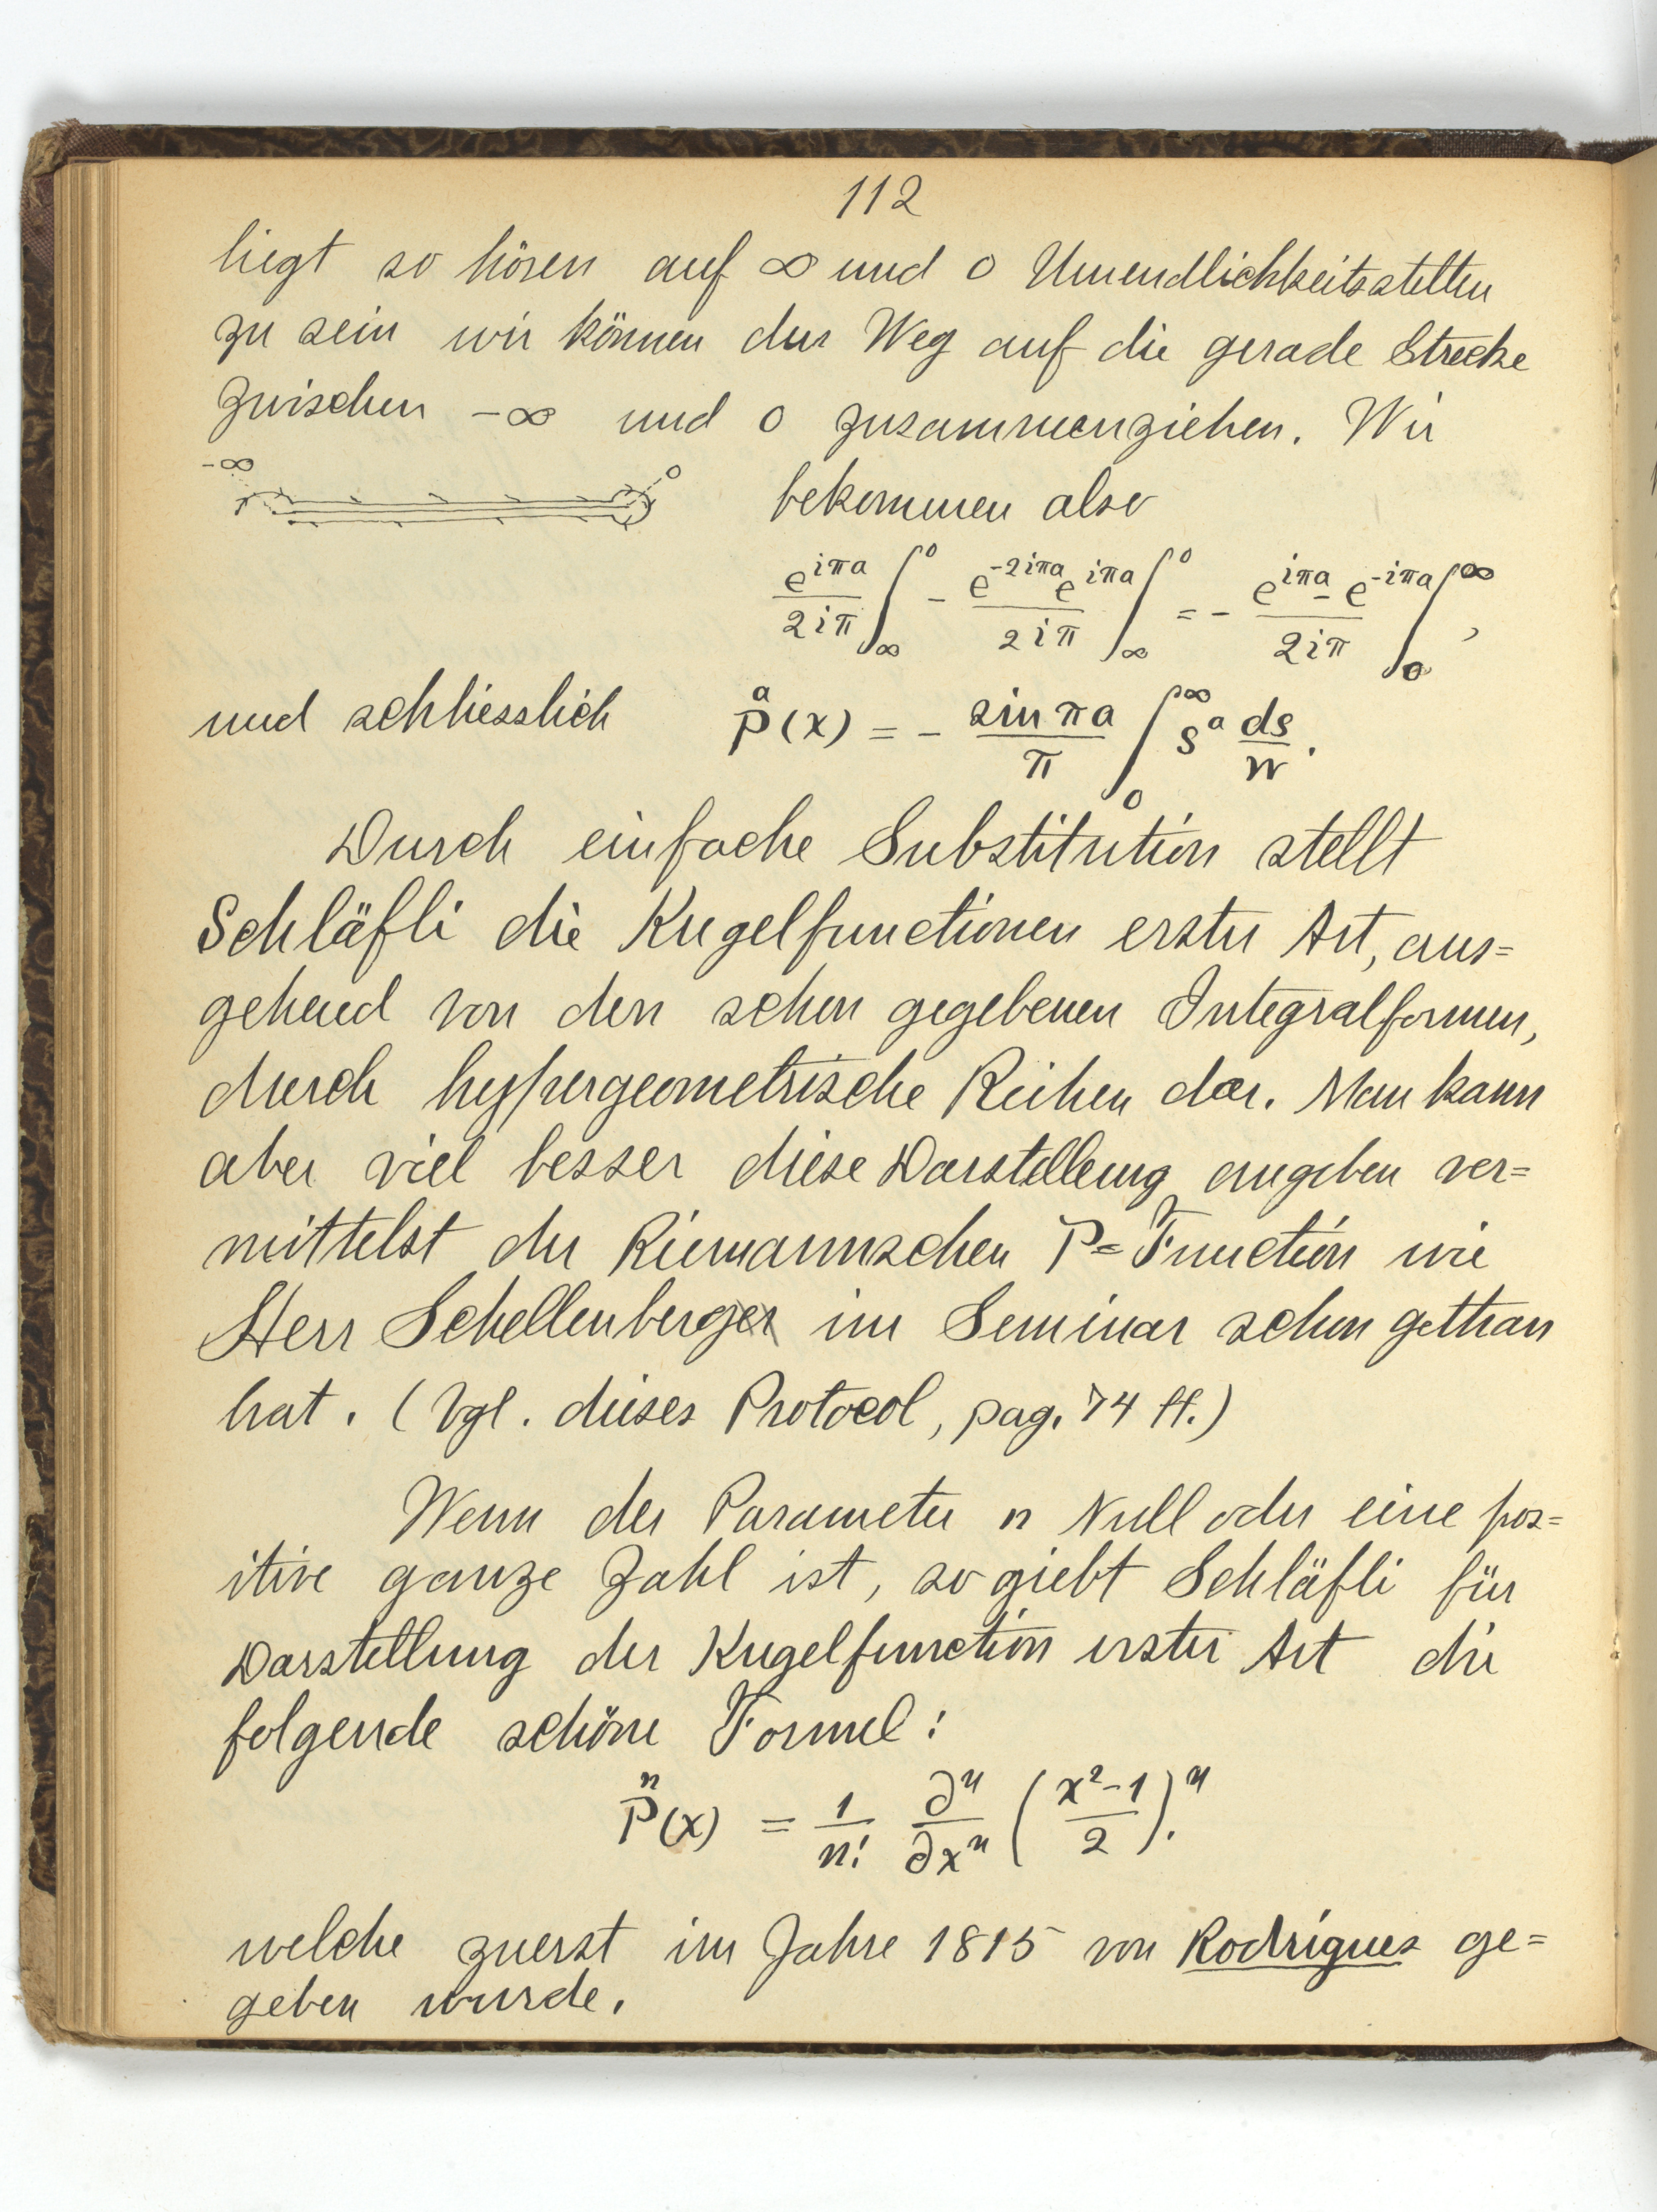 112
liegt so hören auf ∞ und 0 Unendlichkeitsstellen
zu sein wir können der Weg auf die gerade Strecke
zwischen -∞ und 0 zusammenziehen. Wir
-∞ 0
bekommen also
\frac{e^{iπa}}{2iπ} ∫_∞^0 - \frac{e^{-2iπa} e^{iπa}}{2iπ} ∫_∞^0 = - \frac{e^{iπa} - e^{-iπa}}{2iπ} ∫_0^∞,
und schliesslich \overset{a}{P}(x) = - \frac{sin πa}{π} ∫_0^∞ s^a \frac{ds}{w}.
Durch einfache Substitution stellt
Schläfli die Kugelfunctionen erster Art, aus=
gehend von den schon gegebenen Integralformen,
durch hypergeometrische Reihen dar. Man kann
aber viel besser diese Darstellung angeben ver=
mittelst der Riemannschen P=Function wie
Herr Schellenberger im Seminar schon gethan
hat. (Vgl. dieses Protocol, pag. 74 ff.)
Wenn der Parameter n Null oder eine pos=
itive ganze Zahl ist, so giebt Schläfli für
Darstellung der Kugelfunction erster Art die
folgende schöne Formel:
\overset{n}{P}(x) = \frac{1}{n!} \frac{∂^n}{∂x^n} (\frac{x^2-1}{2})^n.
welche zuerst im Jahre 1815 von Rodrigues ge=
geben wurde.